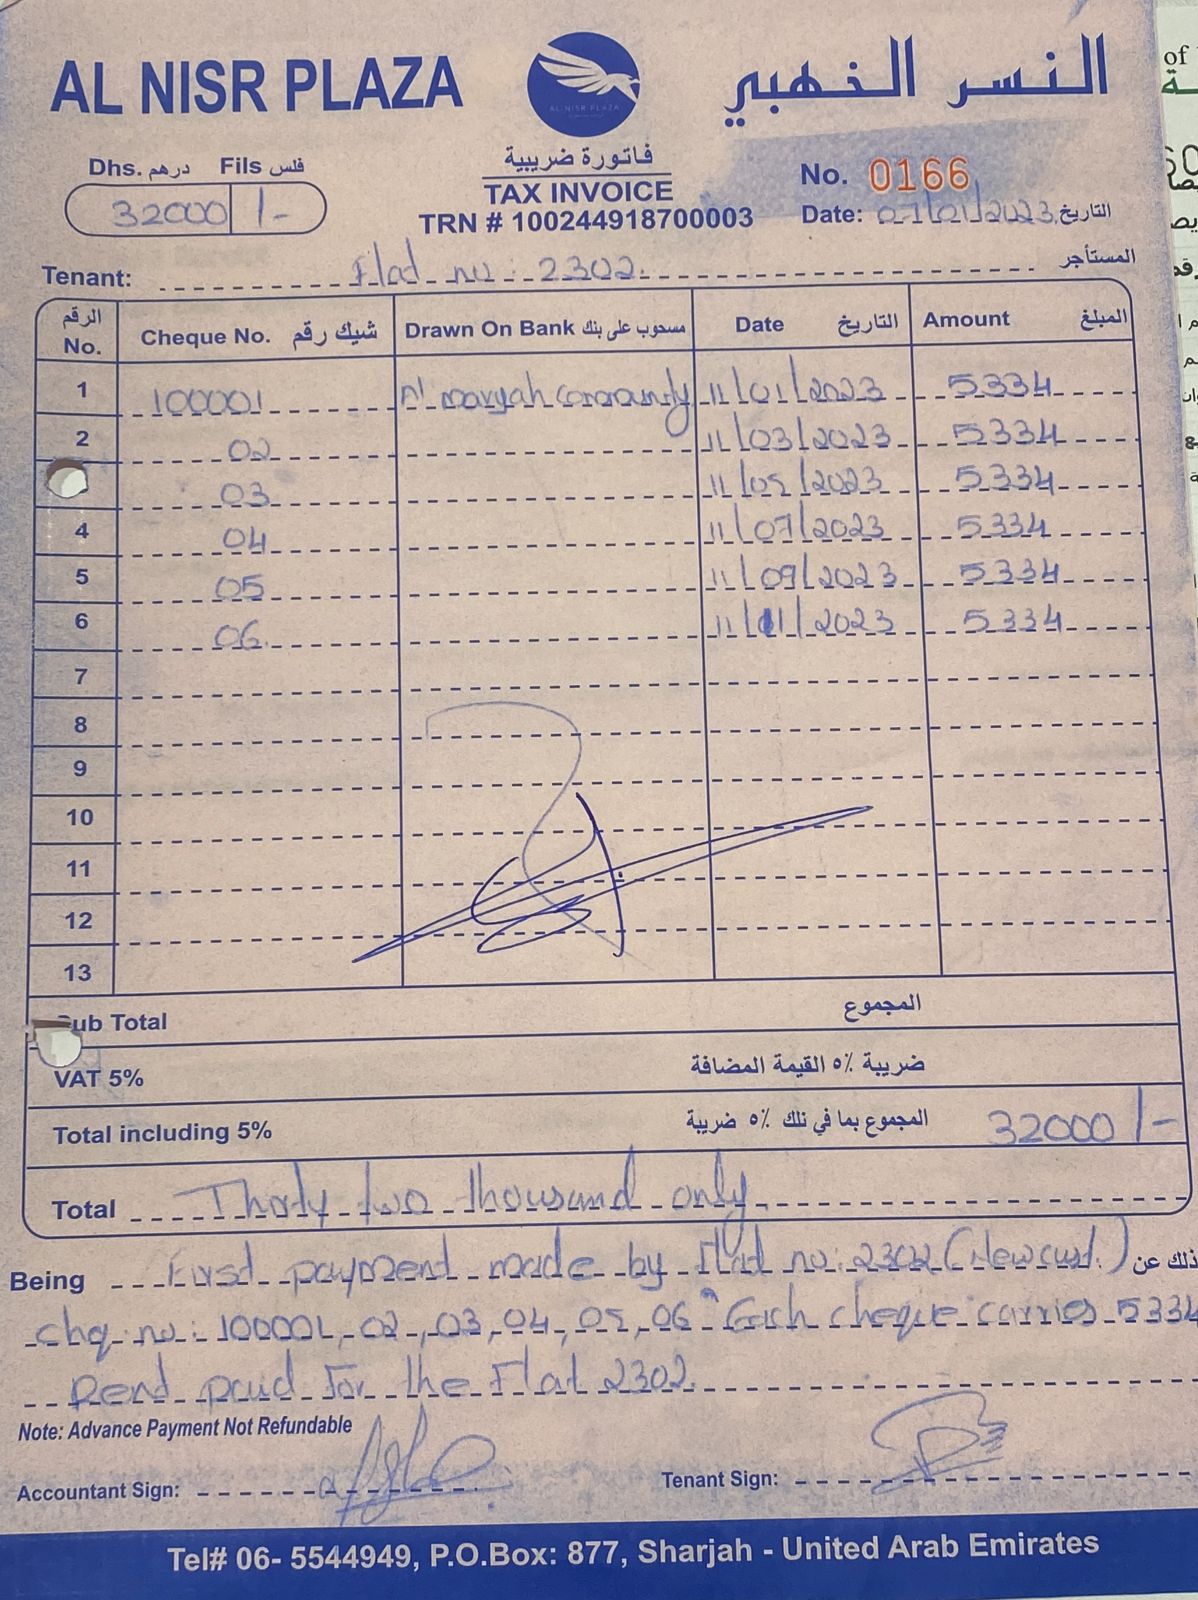 AL NISR PLAZA
AL NISR PLAZA
النسر الذهبي
Dhs. درهم Fils فلس
32000 /-
فاتورة ضريبية
TAX INVOICE
TRN # 100244918700003
No. 0166
Date: 07/01/2023 التاريخ
Tenant: Flat no: 2302 المستأجر
الرقم No. Cheque No. شيك رقم Drawn On Bank مسحوب على بنك Date التاريخ Amount المبلغ
1 100001 Al maryah Community 11/01/2023 5334
2 02 11/03/2023 5334
03 11/05/2023 5334
4 04 11/07/2023 5334
5 05 11/09/2023 5334
6 06 11/11/2023 5334
7
8
9
10
11
12
13
Sub Total المجموع
VAT 5% ضريبة ٥٪ القيمة المضافة
Total including 5% المجموع بما في تلك ٥٪ ضريبة 32000/-
Total Thirty two thousand only
Being First payment made by Flat no: 2302 (New cust.) ذلك عن
chq no: 100001, 02, 03, 04, 05, 06 Each cheque carries 5334
Rent paid for the Flat 2302.
Note: Advance Payment Not Refundable
Accountant Sign: Tenant Sign:
Tel# 06- 5544949, P.O.Box: 877, Sharjah - United Arab Emirates